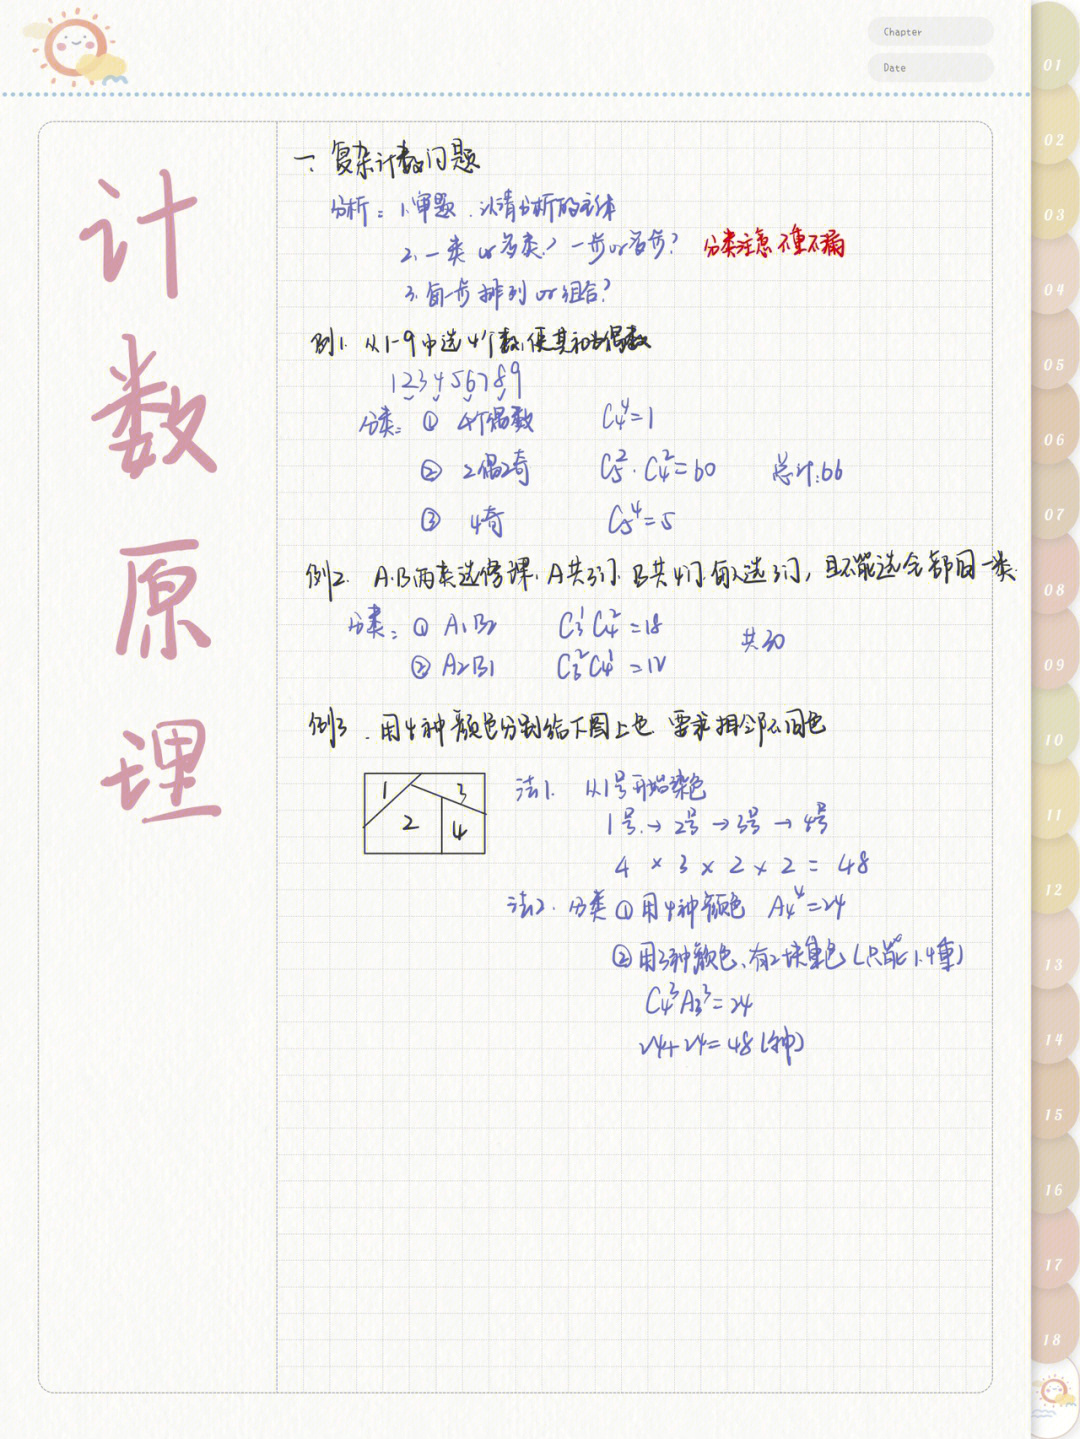 Chapter
Date
计数原理
一、复杂计数问题
分析：1.审题、认清分析的主体
2、一类 or 多类？一步 or 多步？ 分类注意不重不漏
3.每一步排列 or 组合？
例1. 从1-9中选4个数，使其和为偶数
123456789
分类：① 4个偶数 C₄⁴=1
② 2偶2奇 C₅²·C₄²=60 总计：66
③ 4奇 C₅⁴=5
例2. A、B两类选修课、A共3门、B共4门、每人选3门，且不能选全部同一类.
分类：① A1B2 C₃¹C₄²=18 共30
② A2B1 C₃²C₄¹=12
例3. 用4种颜色分别给下图上色 要求相邻不同色
1 2 3 4
法1. 从1号开始染色
1号→2号→3号→4号
4×3×2×2=48
法2. 分类①用4种颜色 A₄⁴=24
②用3种颜色、有2块重色（只能1.4重）
C₄³A₃³=24
24+24=48（种）
01
02
03
04
05
06
07
08
09
10
11
12
13
14
15
16
17
18